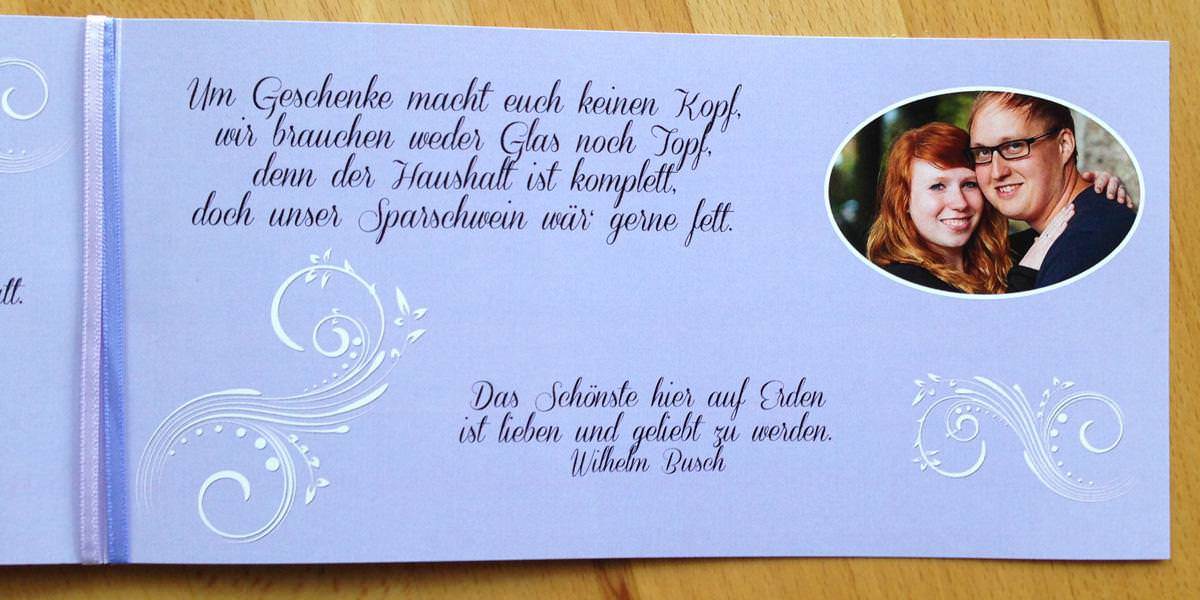 Um Geschenke macht euch keinen Kopf,
wir brauchen weder Glas noch Topf,
denn der Haushalt ist komplett,
doch unser Sparschwein wär' gerne fett.
Das Schönste hier auf Erden
ist lieben und geliebt zu werden.
Wilhelm Busch